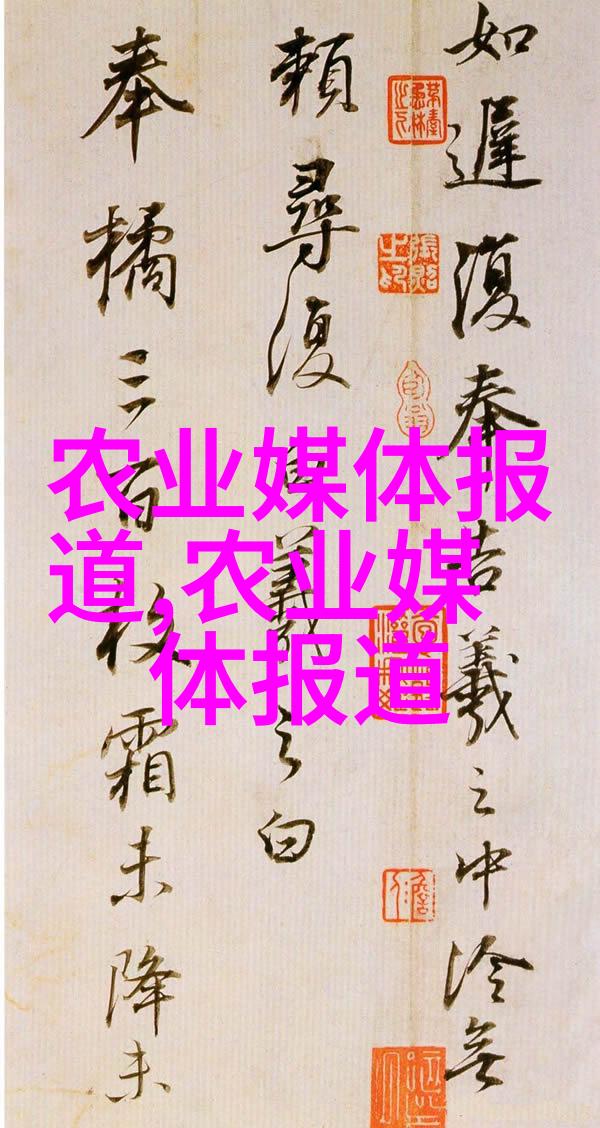 如遲復奉告羲之中冷無
賴尋復白羲之白
奉橘三百枚霜未降未
农业媒体报
道,农业媒
体报道